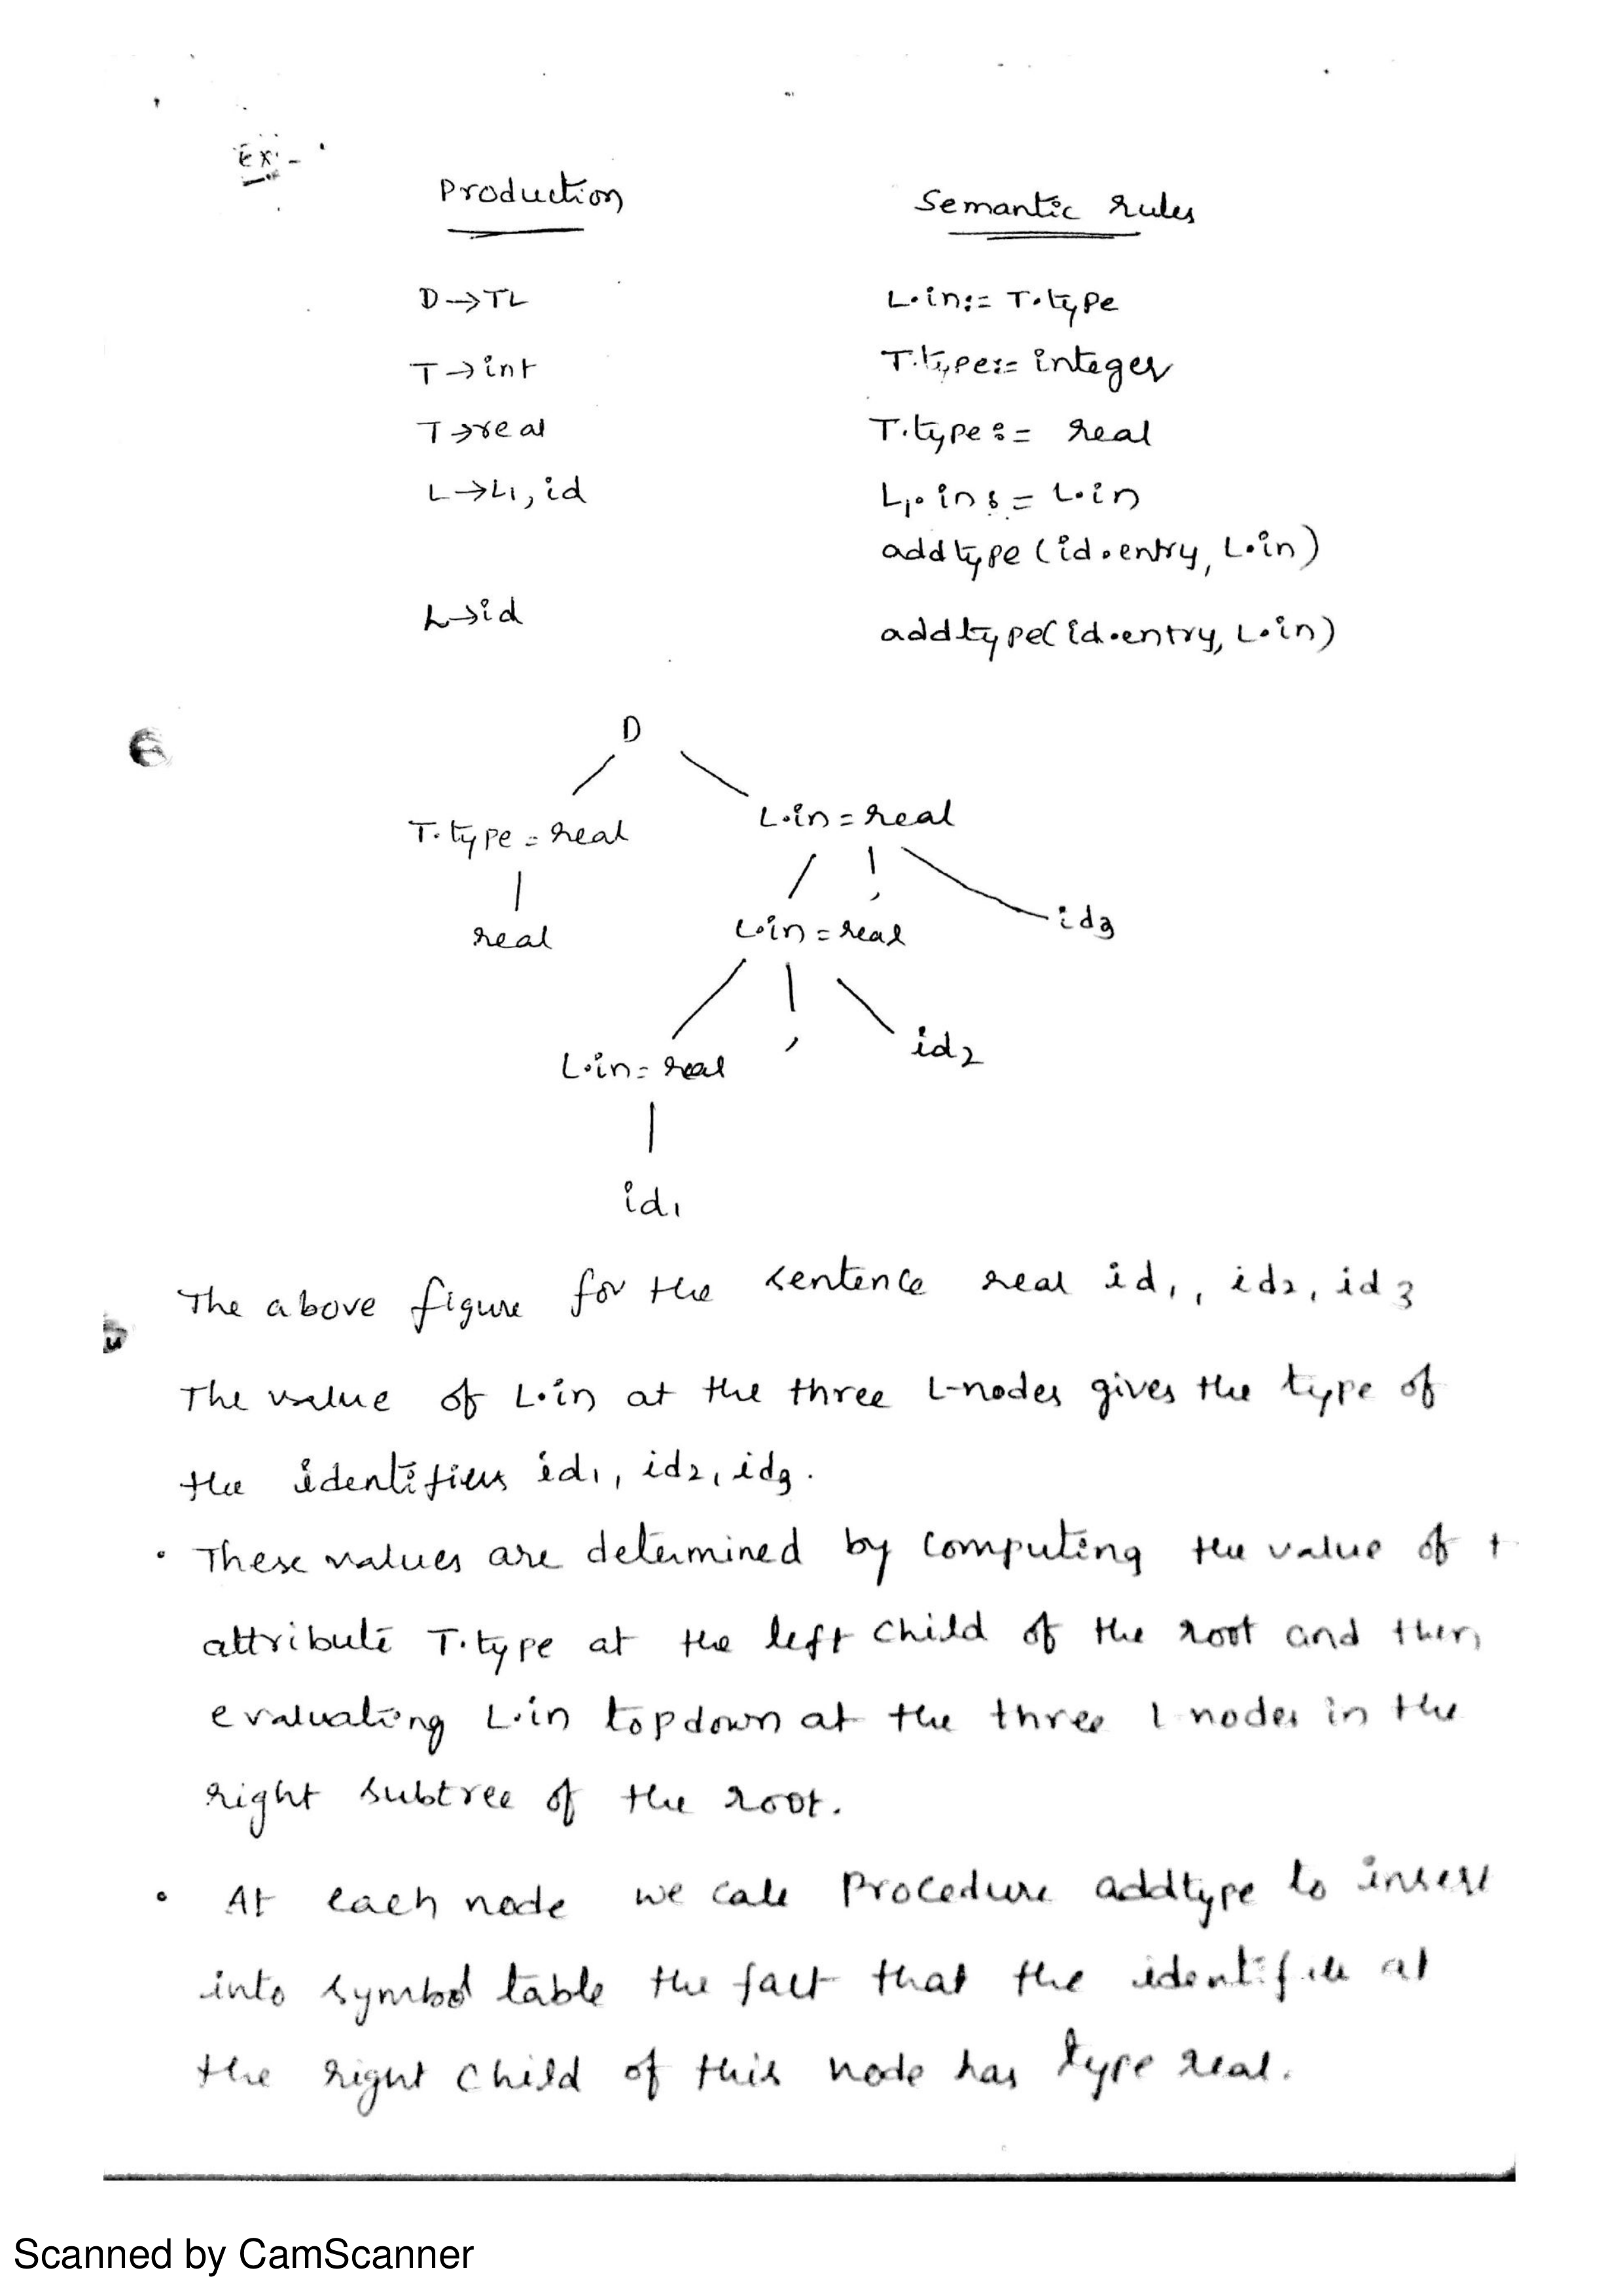 Ex:-
Production Semantic rules
D→TL L.in:= T.type
T→int T.type:= integer
T→real T.type:= real
L→L1, id L1.in:= L.in
addtype(id.entry, L.in)
L→id addtype(id.entry, L.in)
D
T.type = real L.in = real
real L.in = real , id3
L.in = real , id2
id1
The above figure for the sentence real id1, id2, id3
The value of L.in at the three L-nodes gives the type of
the identifiers id1, id2, id3.
• These values are determined by computing the value of t
attribute T.type at the left child of the root and then
evaluating L.in topdown at the three L nodes in the
right subtree of the root.
• At each node we call Procedure addtype to insert
into symbol table the fact that the identifier at
the right child of this node has type real.
Scanned by CamScanner